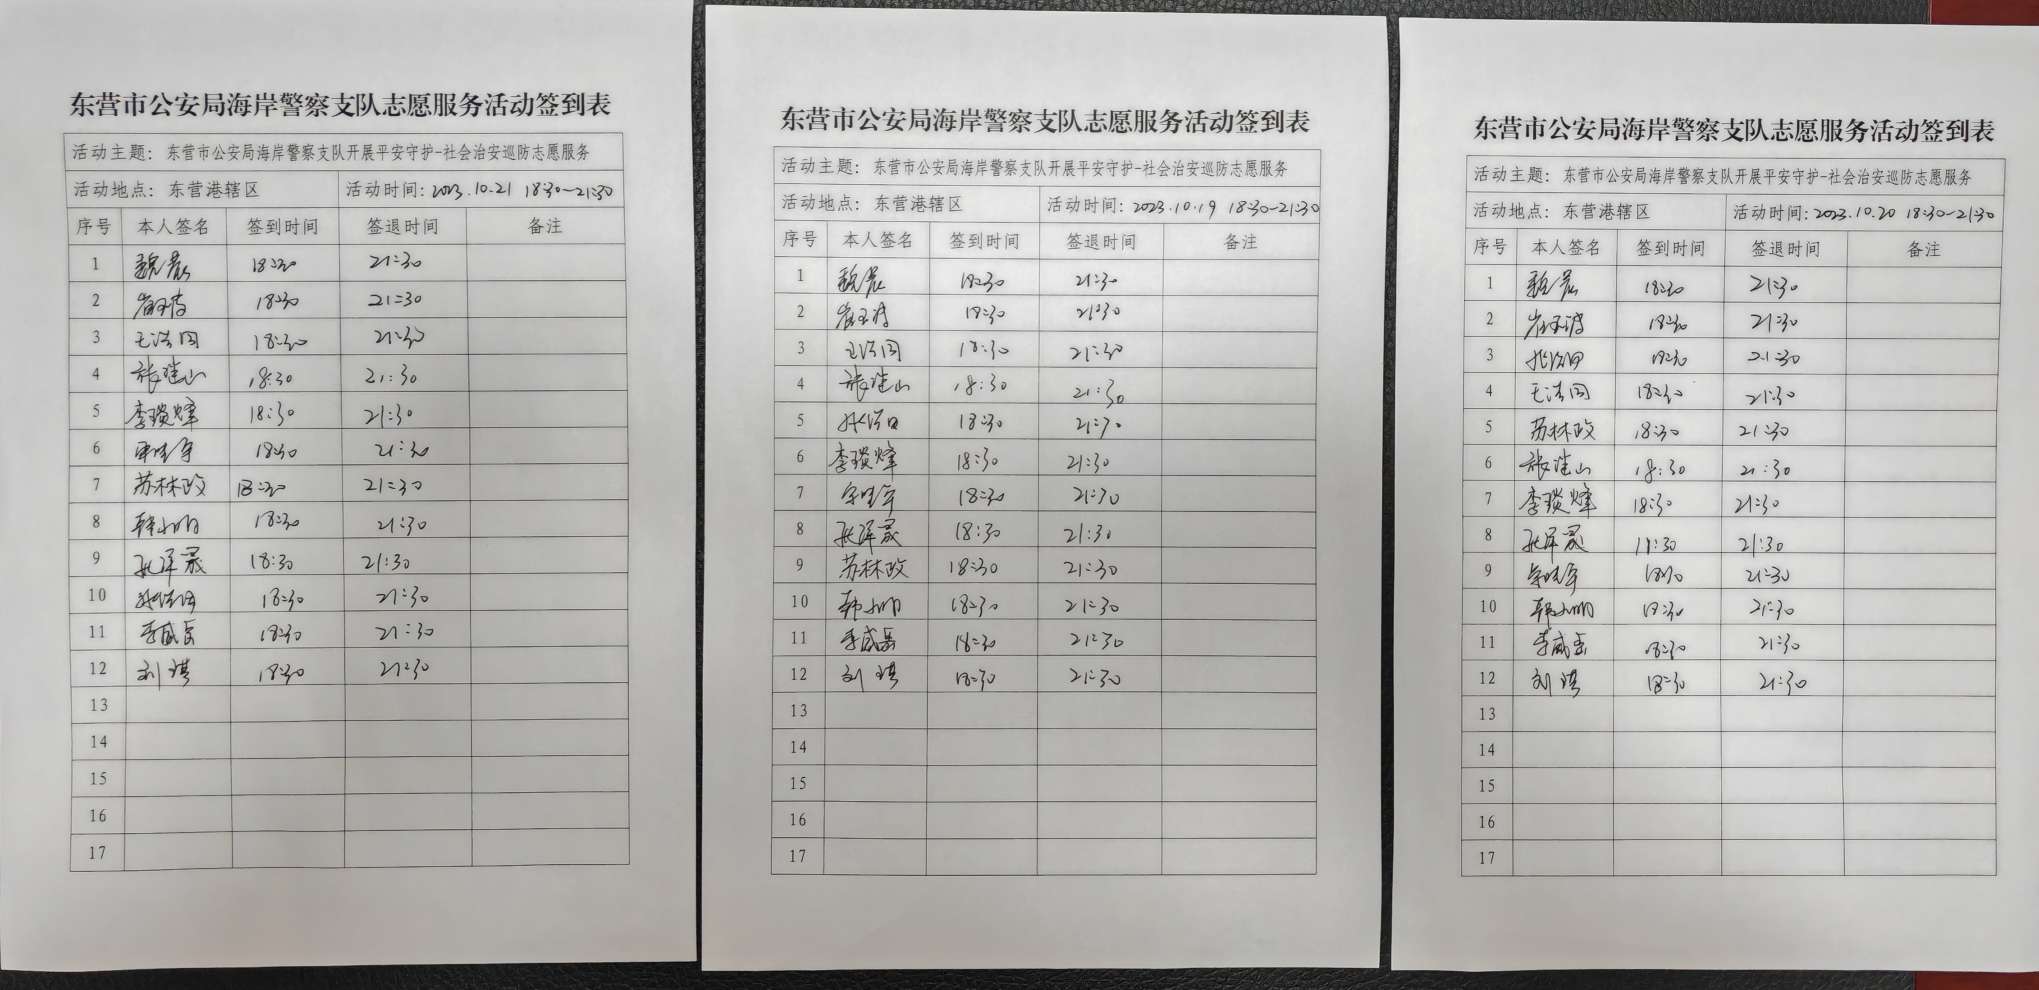 东营市公安局海岸警察支队志愿服务活动签到表
活动主题: 东营市公安局海岸警察支队开展平安守护-社会治安巡防志愿服务
活动地点: 东营港辖区 活动时间: 2023.10.21 18:30~21:30
序号 本人签名 签到时间 签退时间 备注
1 魏晨 18:30 21:30
2 18:30 21:30
3 18:30 21:30
4 18:30 21:30
5 18:30 21:30
6 18:30 21:30
7 苏林政 18:30 21:30
8 18:30 21:30
9 18:30 21:30
10 18:30 21:30
11 李威岳 18:30 21:30
12 刘琪 18:30 21:30
13
14
15
16
17
东营市公安局海岸警察支队志愿服务活动签到表
活动主题: 东营市公安局海岸警察支队开展平安守护-社会治安巡防志愿服务
活动地点: 东营港辖区 活动时间: 2023.10.19 18:30~21:30
序号 本人签名 签到时间 签退时间 备注
1 魏晨 18:30 21:30
2 18:30 21:30
3 18:30 21:30
4 18:30 21:30
5 18:30 21:30
6 18:30 21:30
7 18:30 21:30
8 18:30 21:30
9 苏林政 18:30 21:30
10 18:30 21:30
11 李威岳 18:30 21:30
12 刘琪 18:30 21:30
13
14
15
16
17
东营市公安局海岸警察支队志愿服务活动签到表
活动主题: 东营市公安局海岸警察支队开展平安守护-社会治安巡防志愿服务
活动地点: 东营港辖区 活动时间: 2023.10.20 18:30~21:30
序号 本人签名 签到时间 签退时间 备注
1 魏晨 18:30 21:30
2 18:30 21:30
3 18:30 21:30
4 18:30 21:30
5 苏林政 18:30 21:30
6 18:30 21:30
7 18:30 21:30
8 18:30 21:30
9 18:30 21:30
10 18:30 21:30
11 李威岳 18:30 21:30
12 刘琪 18:30 21:30
13
14
15
16
17